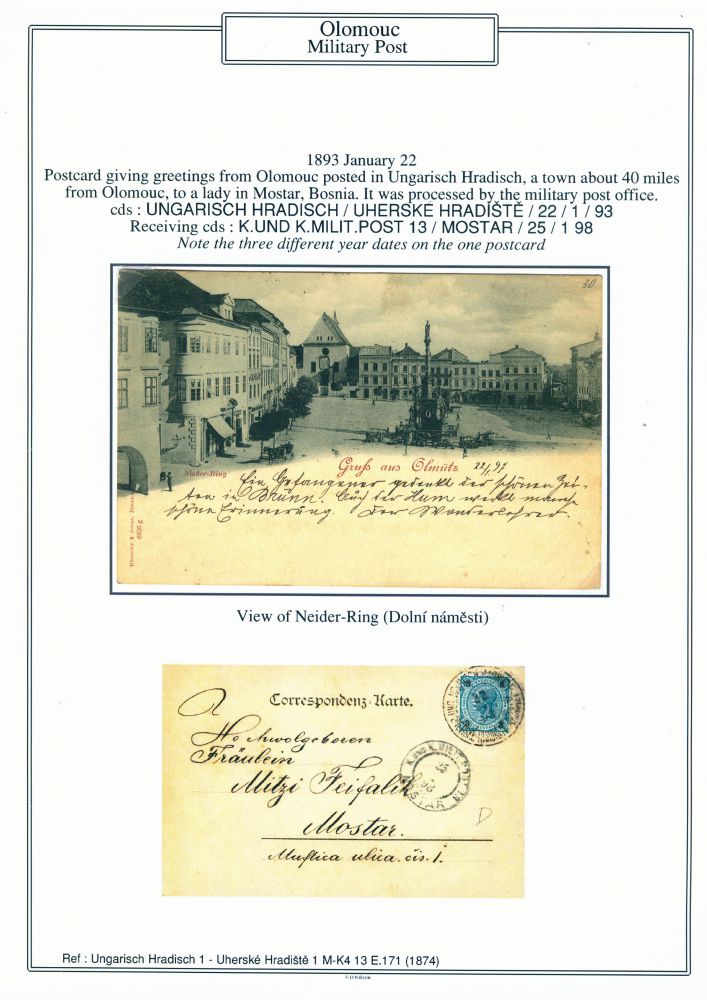 Olomouc
Military Post
1893 January 22
Postcard giving greetings from Olomouc posted in Ungarisch Hradisch, a town about 40 miles
from Olomouc, to a lady in Mostar, Bosnia. It was processed by the military post office.
cds : UNGARISCH HRADISCH / UHERSKÉ HRADÍŠTĚ / 22 / 1 / 93
Receiving cds : K.UND K.MILIT.POST 13 / MOSTAR / 25 / 1 98
Note the three different year dates on the one postcard
30
Nieder-Ring
Gruß aus Olmütz 22/1 97
Ein Gefangener gedenkt der schönen Zei-
ten in Brünn. der Ham weckt manche
schöne Erinnerung. Der
6826 g
View of Neider-Ring (Dolní náměsti)
Correspondenz-Karte.
Hochwolgeboren
Fräulein
Mitzi Feifalik
Mostar.
ulica. čis. 1.
K. UND K. MILIT. POST 13
25
98
MOSTAR
D
Ref : Ungarisch Hradisch 1 - Uherské Hradiště 1 M-K4 13 E.171 (1874)